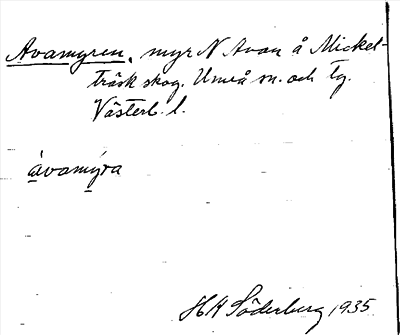 Avamyren, myr N Avan å Mickel-
träsk skog. Umeå sn. och tg.
Västerb. l.
àvamýra
H H Söderberg 1935